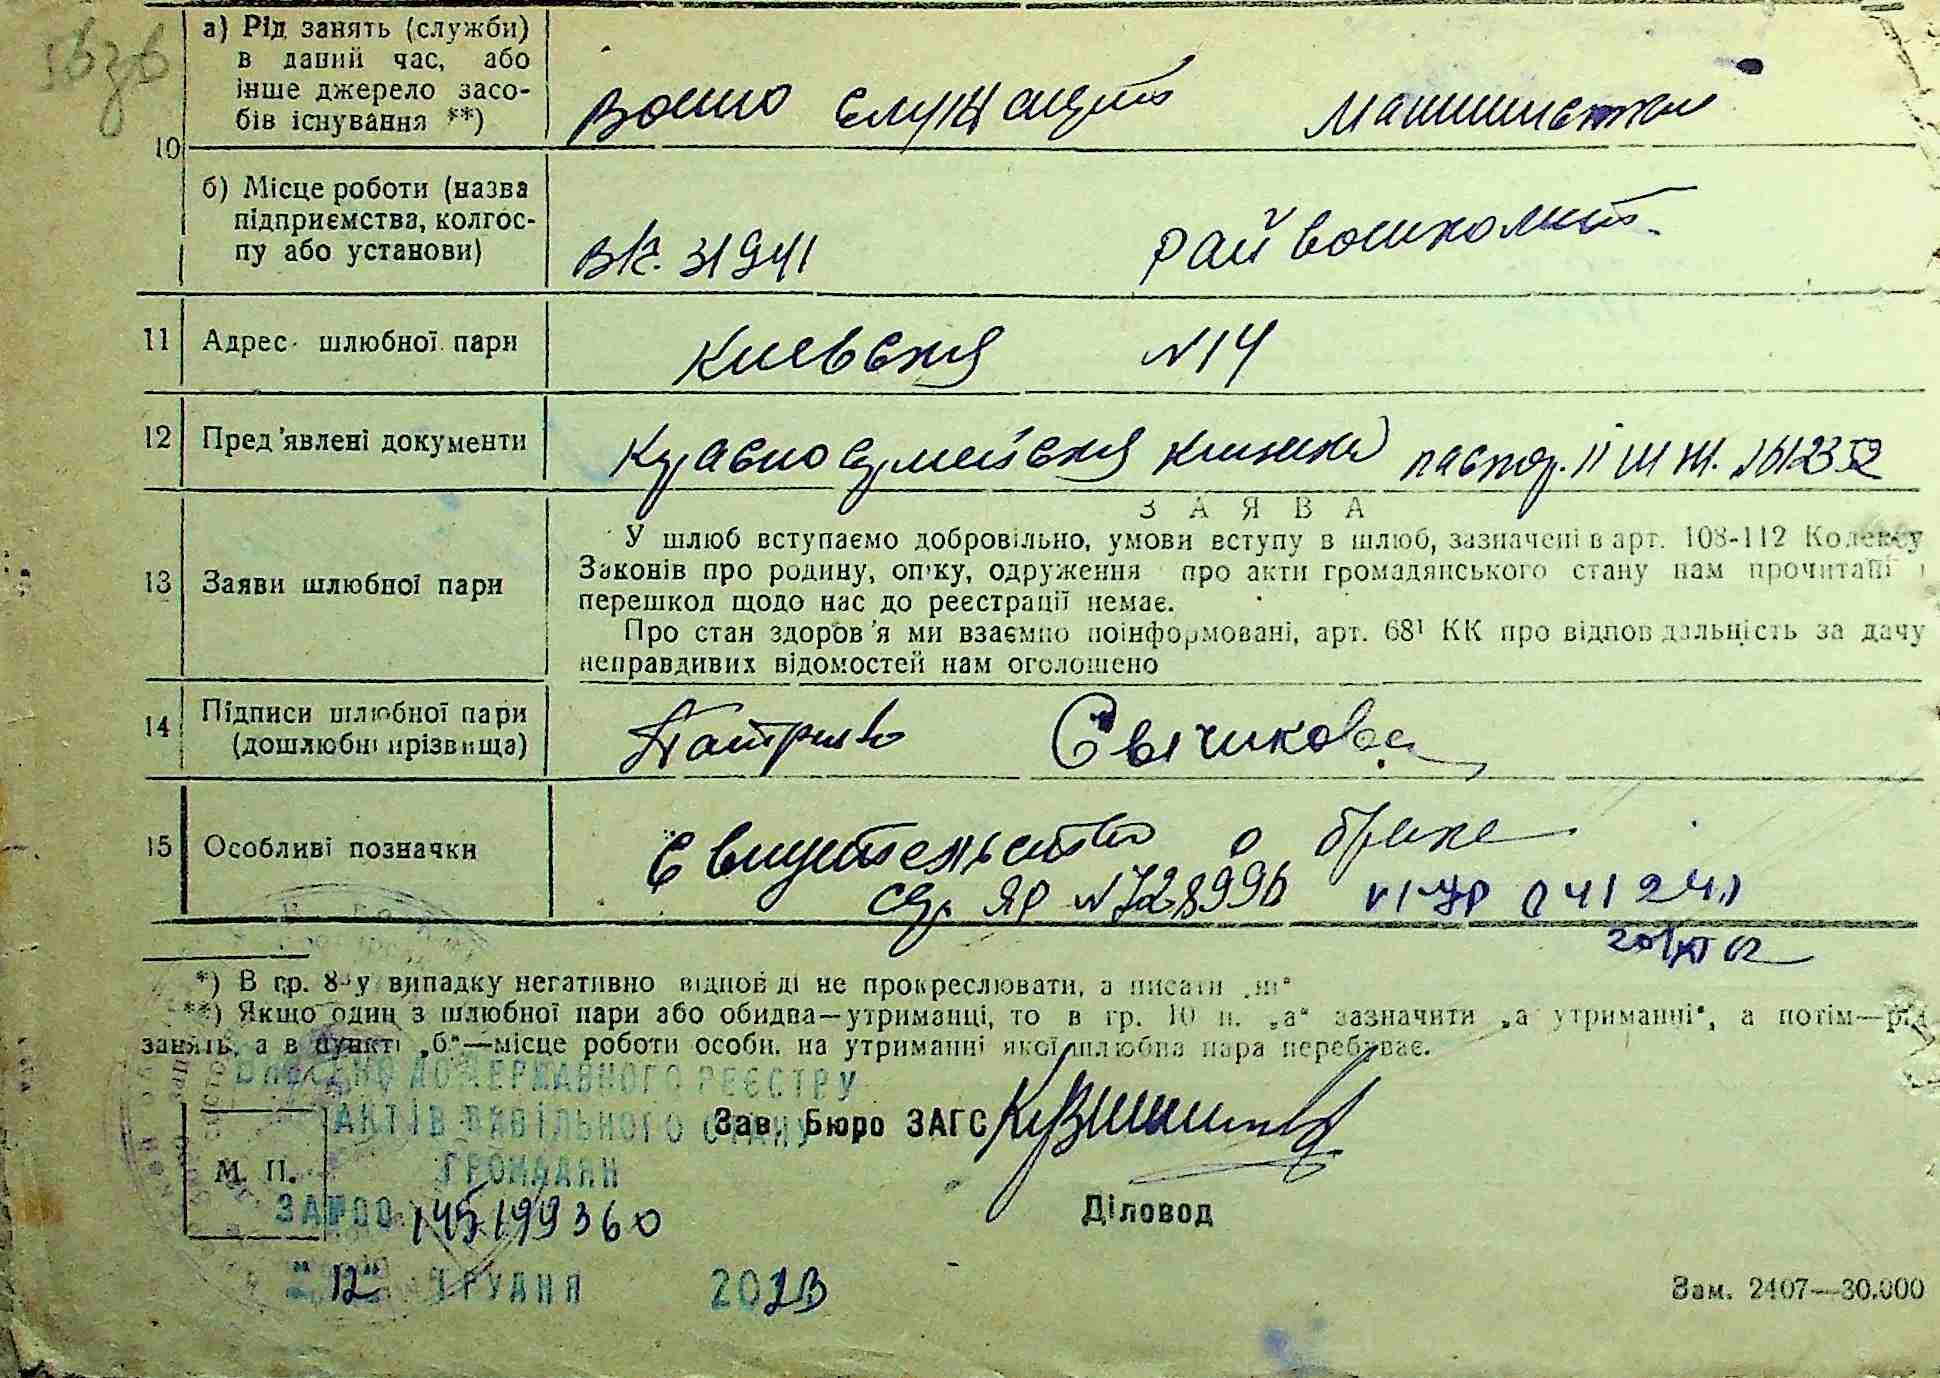 а) Рід занять (служби)
в даний час, або
інше джерело засо-
бів існування **)
Воено служащий машинистка
10
б) Місце роботи (назва
підприємства, колгос-
пу або установи)
В/ч. 31941 райвоенкомат
11 Адрес шлюбної пари Киевская №14
12 Пред'явлені документи Красноармейская книжка паспор. II ШЖ. №612352
З А Я В А
13 Заяви шлюбної пари
У шлюб вступаємо добровільно, умови вступу в шлюб, зазначені в арт. 108-112 Кодексу
Законів про родину, опіку, одруження про акти громадянського стану нам прочитані і
перешкод щодо нас до реєстрації немає.
Про стан здоров'я ми взаємно поінформовані, арт. 68¹ КК про відповідальність за дачу
неправдивих відомостей нам оголошено
14 Підписи шлюбної пари
(дошлюбні прізвища)
Сычикова
15 Особливі позначки
Свидетельство о браке
ЯР №728996
20/XI 62
*) В гр. 8 у випадку негативно відповіді не прокреслювати, а писати „ні"
**) Якщо один з шлюбної пари або обидва—утриманці, то в гр. 10 п. „а" зазначити „а утриманні", а потім—рід
занять, а в пункті „б"—місце роботи особи, на утриманні якої шлюбна пара перебуває.
ВНЕСЕНО ДО ДЕРЖАВНОГО РЕЄСТРУ
АКТІВ ЦИВІЛЬНОГО СТАНУ
ГРОМАДЯН
Зав. Бюро ЗАГС
М. П.
ЗА №00 145199360
Діловод
"12" ГРУДНЯ 2023
Зам. 2407—30.000